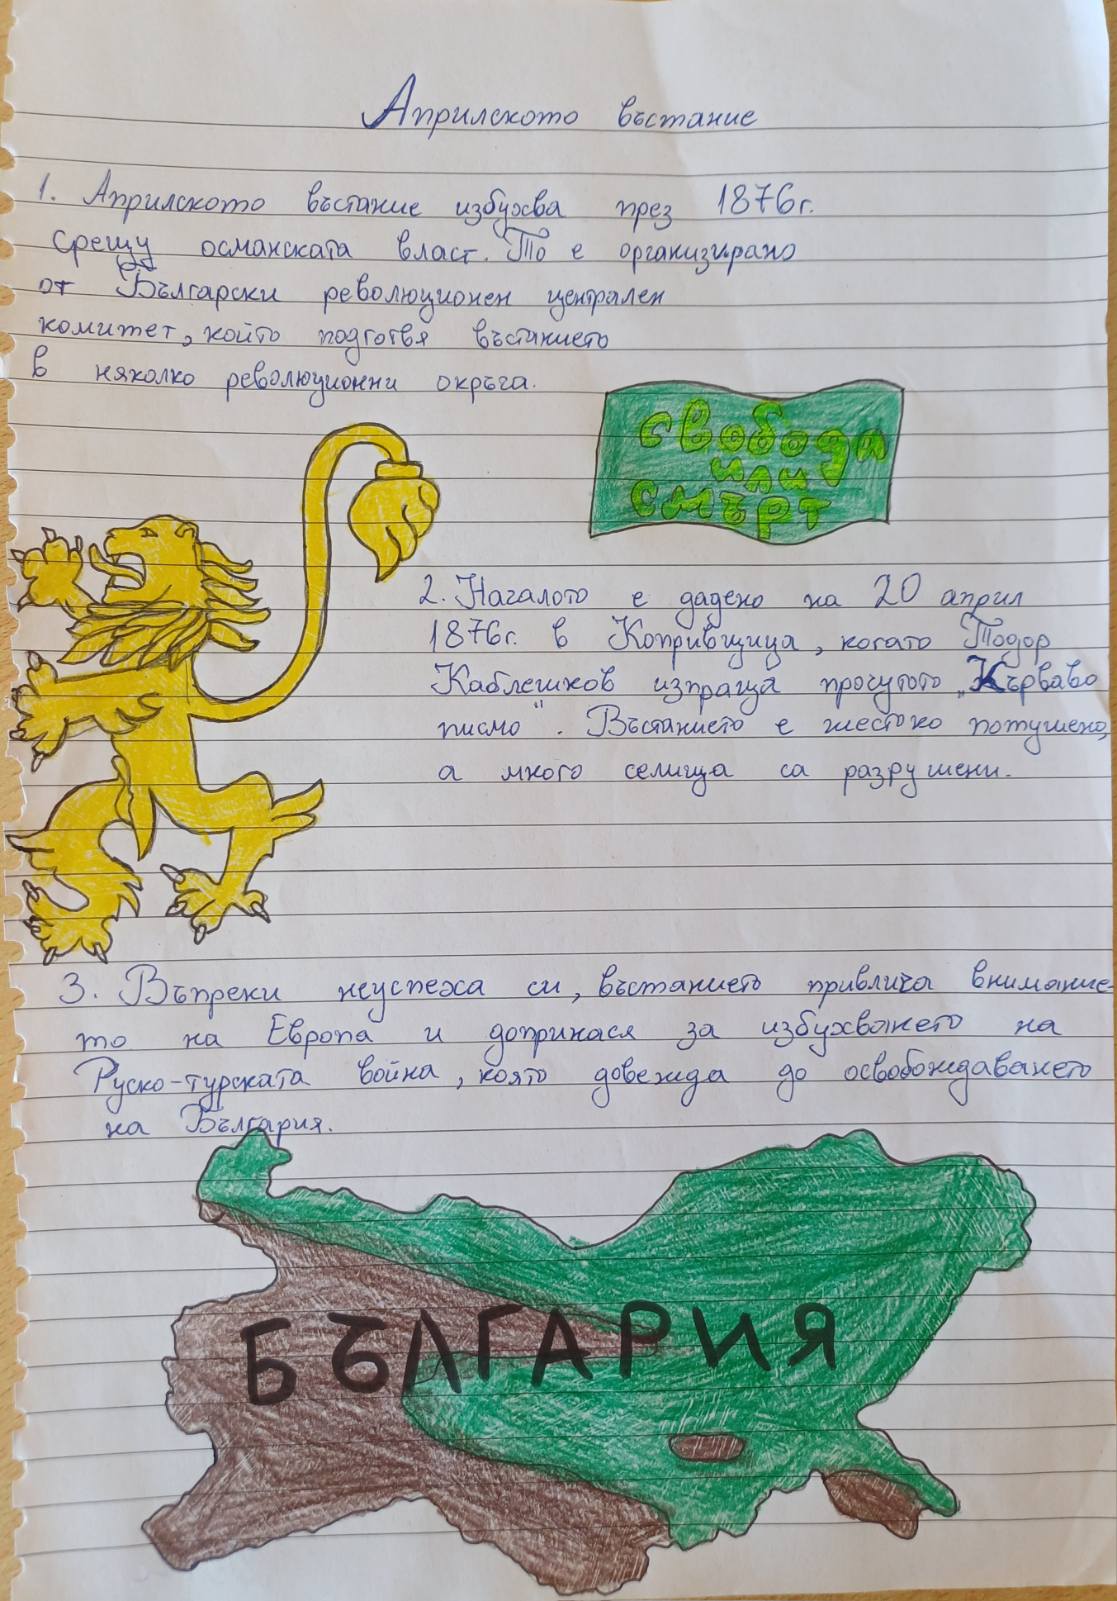 Априлското въстание
1. Априлското въстание избухва през 1876г.
срещу османската власт. То е организирано
от Български революционен централен
комитет, който подготвя въстанието
в няколко революционни окръга.
свобода
или
смърт
2. Началото е дадено на 20 април
1876г. в Копривщица, когато Тодор
Каблешков изпраща прочутото „Кърваво
писмо“. Въстанието е жестоко потушено,
а много селища са разрушени.
3. Въпреки неуспеха си, въстанието привлича внимание-
то на Европа и допринася за избухването на
Руско-турската война, която довежда до освобождаването
на България.
БЪЛГАРИЯ